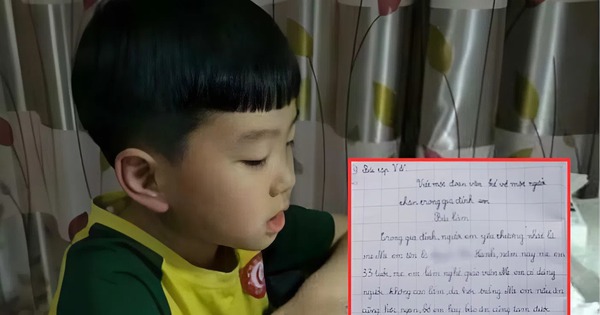 Bài tập
Viết một đoạn văn kể về một người
thân trong gia đình em
Bài làm
Trong gia đình, người em yêu thương nhất là
mẹ. Mẹ em tên là năm nay mẹ em
33 tuổi, mẹ em làm nghề giáo viên. Mẹ em có dáng
người không cao lắm da hơi trắng. Mẹ em nấu ăn
cũng hơi ngon, bố em hay bảo ăn cũng tạm được